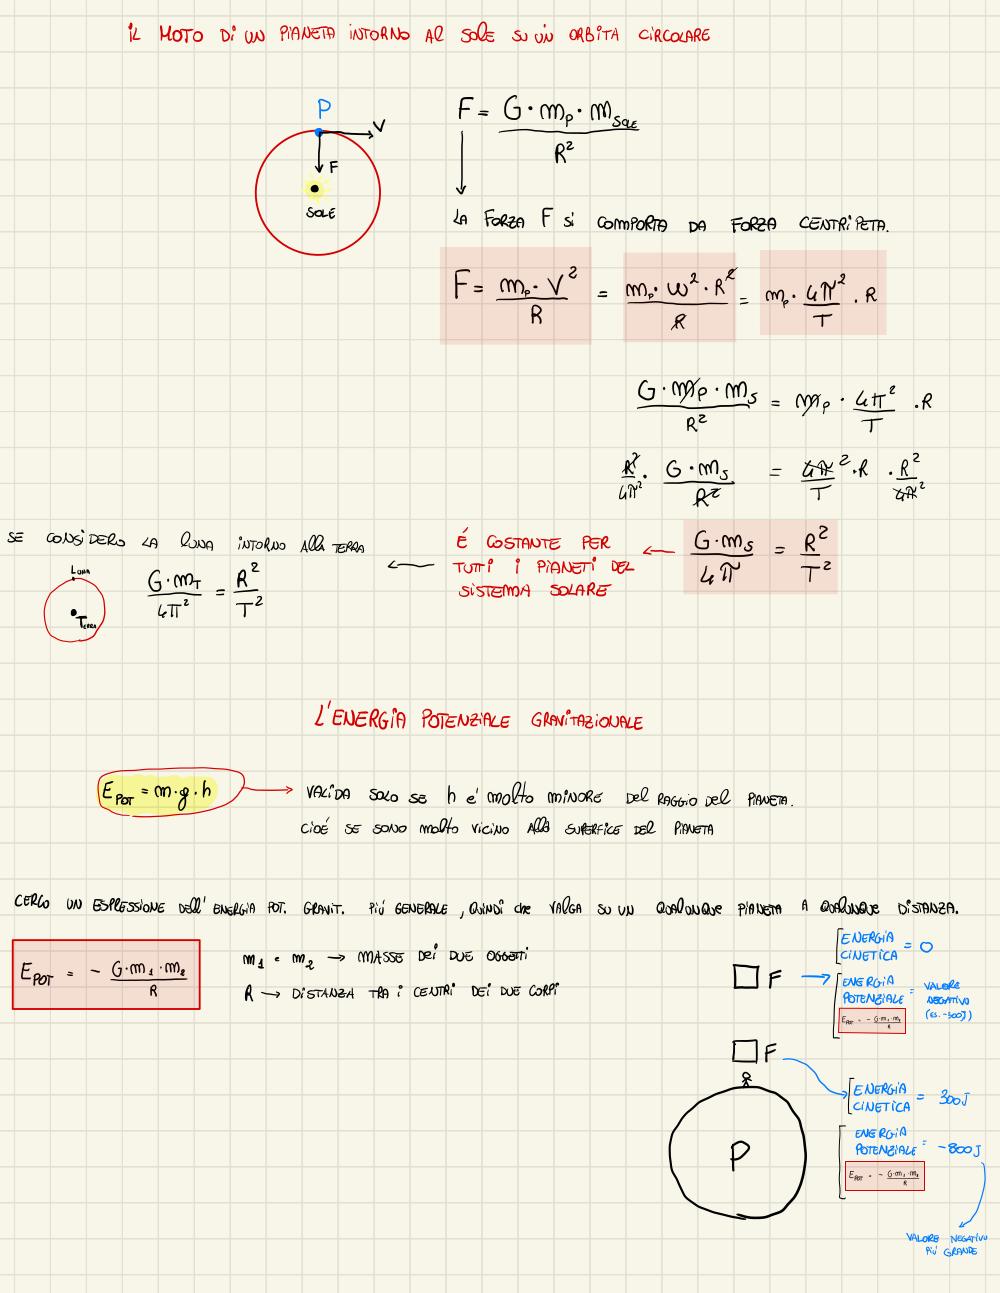 IL MOTO DI UN PIANETA INTORNO AL SOLE SU UN ORBITA CIRCOLARE
P
V
F
SOLE
F = G · mp · mSOLE / R²
LA FORZA F SI COMPORTA DA FORZA CENTRIPETA.
F = mp · V² / R = mp · ω² · R² / R = mp · 4π² / T · R
G · mp · ms / R² = mp · 4π² / T · R
R² / 4π² · G · ms / R² = 4π² / T · R · R² / 4π²
G · ms / 4π = R² / T²
É COSTANTE PER
TUTTI I PIANETI DEL
SISTEMA SOLARE
SE CONSIDERO LA LUNA INTORNO ALLA TERRA
LUNA
TERRA
G · mT / 4π² = R² / T²
L'ENERGIA POTENZIALE GRAVITAZIONALE
EPOT = m · g · h
VALIDA SOLO SE h e' MOLTO MINORE DEL RAGGIO DEL PIANETA.
CIOÉ SE SONO MOLTO VICINO ALLA SUPERFICE DEL PIANETA
CERCO UN ESPRESSIONE DELL'ENERGIA POT. GRAVIT. PIÚ GENERALE, QUINDI che VALGA SU UN QUALUNQUE PIANETA A QUALUNQUE DISTANZA.
EPOT = - G · m1 · m2 / R
m1 e m2 → MASSE DEI DUE OGGETTI
R → DISTANZA TRA I CENTRI DEI DUE CORPI
F
ENERGIA
CINETICA = 0
ENERGIA
POTENZIALE = VALORE
NEGATIVO
(ES. -500J)
EPOT = - G · m1 · m2 / R
F
ENERGIA
CINETICA = 300J
ENERGIA
POTENZIALE = -800J
EPOT = - G · m1 · m2 / R
P
VALORE NEGATIVO
PIÚ GRANDE